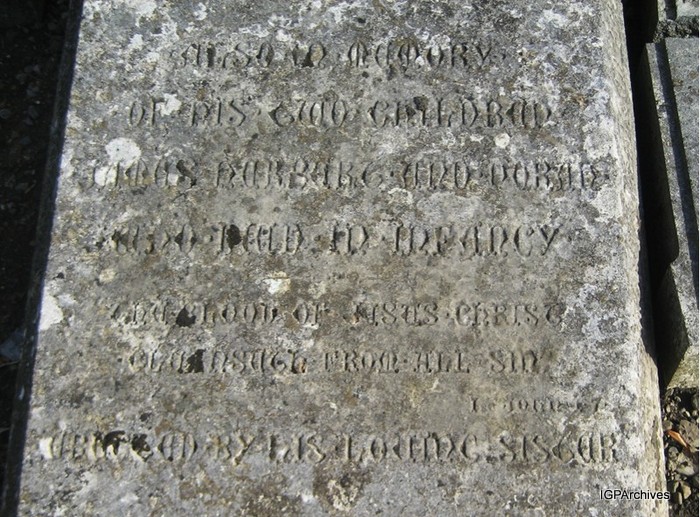 ALSO IN MEMORY
OF HIS TWO CHILDREN
HERBERT AND
WHO DIED IN INFANCY
THE BLOOD OF JESUS CHRIST
CLEANSETH FROM ALL SIN
I. JOHN 1.7.
ERECTED BY HIS LOVING SISTER
IGPArchives